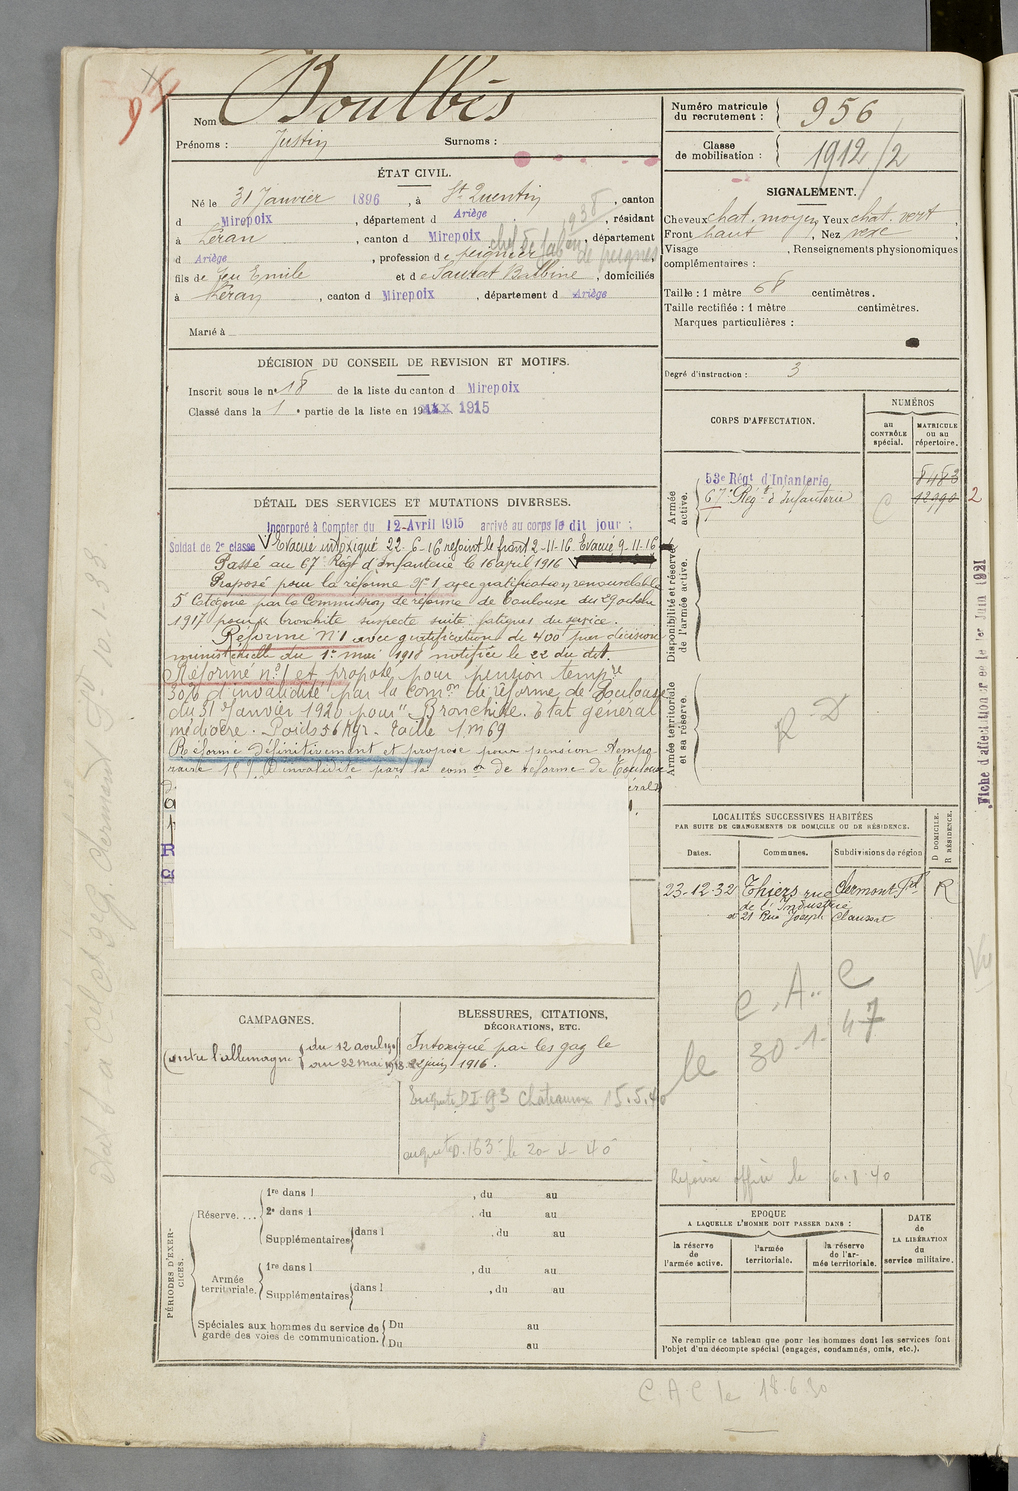 Nom Boulbès
Prénoms : Justin Surnoms :
ÉTAT CIVIL.
Né le 31 Janvier 1896, à St Quentin, canton
d Mirepoix, département d Ariège, résidant
à Léran, canton d Mirepoix, département
d Ariège, profession de peignier chef de fabon de peignes 1938
fils de feu Emile et de Saurat Balbine, domiciliés
à Léran, canton d Mirepoix, département d Ariège
Marié à
DÉCISION DU CONSEIL DE REVISION ET MOTIFS.
Inscrit sous le n° 18 de la liste du canton d Mirepoix
Classé dans la 1 e partie de la liste en 1915
DÉTAIL DES SERVICES ET MUTATIONS DIVERSES.
Incorporé à Compter du 12 Avril 1915 arrivé au corps le dit jour :
Soldat de 2e classe Evacué intoxiqué 22-6-16 rejoint le front 2-11-16. Evacué 9-11-16
Passé au 67e Régt d'Infanterie le 16 avril 1916
Proposé pour la réforme N° 1 avec gratification renouvelable
5e Catégorie par la Commission de réforme de Toulouse du 29 octobre
1917 pour bronchite suspecte suite fatigues du service.
Réformé N°1 avec gratification de 400f par décision
ministérielle du 1er mai 1918 notifiée le 22 du dit.
Réformé n°1 et proposé pour pension tempre
30% d'invalidité par la Comon de réforme de Toulouse
du 31 Janvier 1920 pour "Bronchite. Etat général
médiocre. Poids 56 Kgr. Taille 1.m69
Réformé définitivement et proposé pour pension tempo-
raire 15% d'invalidité par la comon de réforme de Toulouse
CAMPAGNES.
Contre l'allemagne du 12 avril 1915
au 22 mai 1918
BLESSURES, CITATIONS,
DÉCORATIONS, ETC.
Intoxiqué par les gaz le
22 juin 1916.
Enquête D.I 93 Chateauroux 15.5.40
le 20-4-40
PÉRIODES D'EXERCICES.
Réserve....
1re dans l , du au
2e dans l , du au
Supplémentaires dans l , du au
Armée
territoriale.
1re dans l , du au
Supplémentaires dans l , du au
Spéciales aux hommes du service de
garde des voies de communication.
Du au
Du au
Numéro matricule
du recrutement : 956
Classe
de mobilisation : 1912/2
SIGNALEMENT.
Cheveux chat. moyen Yeux chat. vert,
Front haut, Nez vexe,
Visage , Renseignements physionomiques
complémentaires :
Taille : 1 mètre 68 centimètres.
Taille rectifiée : 1 mètre centimètres.
Marques particulières :
Degré d'instruction : 3
CORPS D'AFFECTATION.
NUMÉROS
au
CONTRÔLE
spécial.
MATRICULE
ou au
répertoire.
Armée
active.
53e Régt d'Infanterie 8483
67e Régt d'Infanterie C 12990 2
Disponibilité et réserve
de l'armée active.
Armée territoriale
et sa réserve.
R D
LOCALITÉS SUCCESSIVES HABITÉES
PAR SUITE DE CHANGEMENTS DE DOMICILE OU DE RÉSIDENCE.
Dates.
Communes.
Subdivisions de région
D DOMICILE.
R RÉSIDENCE.
23-12-32 Thiers rue Clermont-Fd R
de l'Industrie
21 Rue Joseph Claussat
C.A.C
le 30-1-47
le 6.8.40
EPOQUE
A LAQUELLE L'HOMME DOIT PASSER DANS :
la réserve
de
l'armée active.
l'armée
territoriale.
la réserve
de l'ar-
mée territoriale.
DATE
de
LA LIBÉRATION
du
service militaire.
Ne remplir ce tableau que pour les hommes dont les services font
l'objet d'un décompte spécial (engagés, condamnés, omis, etc.).
C A C le 18.6.30
Fiche d'affectation créée le 1er Juin 1921
Vu